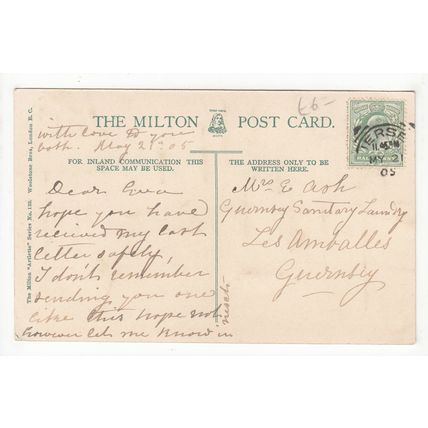 £6-
THE MILTON POST CARD.
with love to you
both. May 21st 05
FOR INLAND COMMUNICATION THIS SPACE MAY BE USED.
THE ADDRESS ONLY TO BE WRITTEN HERE.
Dear Eva
hope you have
recieved my last
letter safely,
I don't remember
sending you one
like this hope not
however let me know in
next
Mrs E Ash
Guernsey Sanitary Laundry
Les Amballes
Guernsey
JERSEY
MY 2
05
HALFPENNY
The Milton "Artistic" Series No. 125. Woolstone Bros., London E.C.